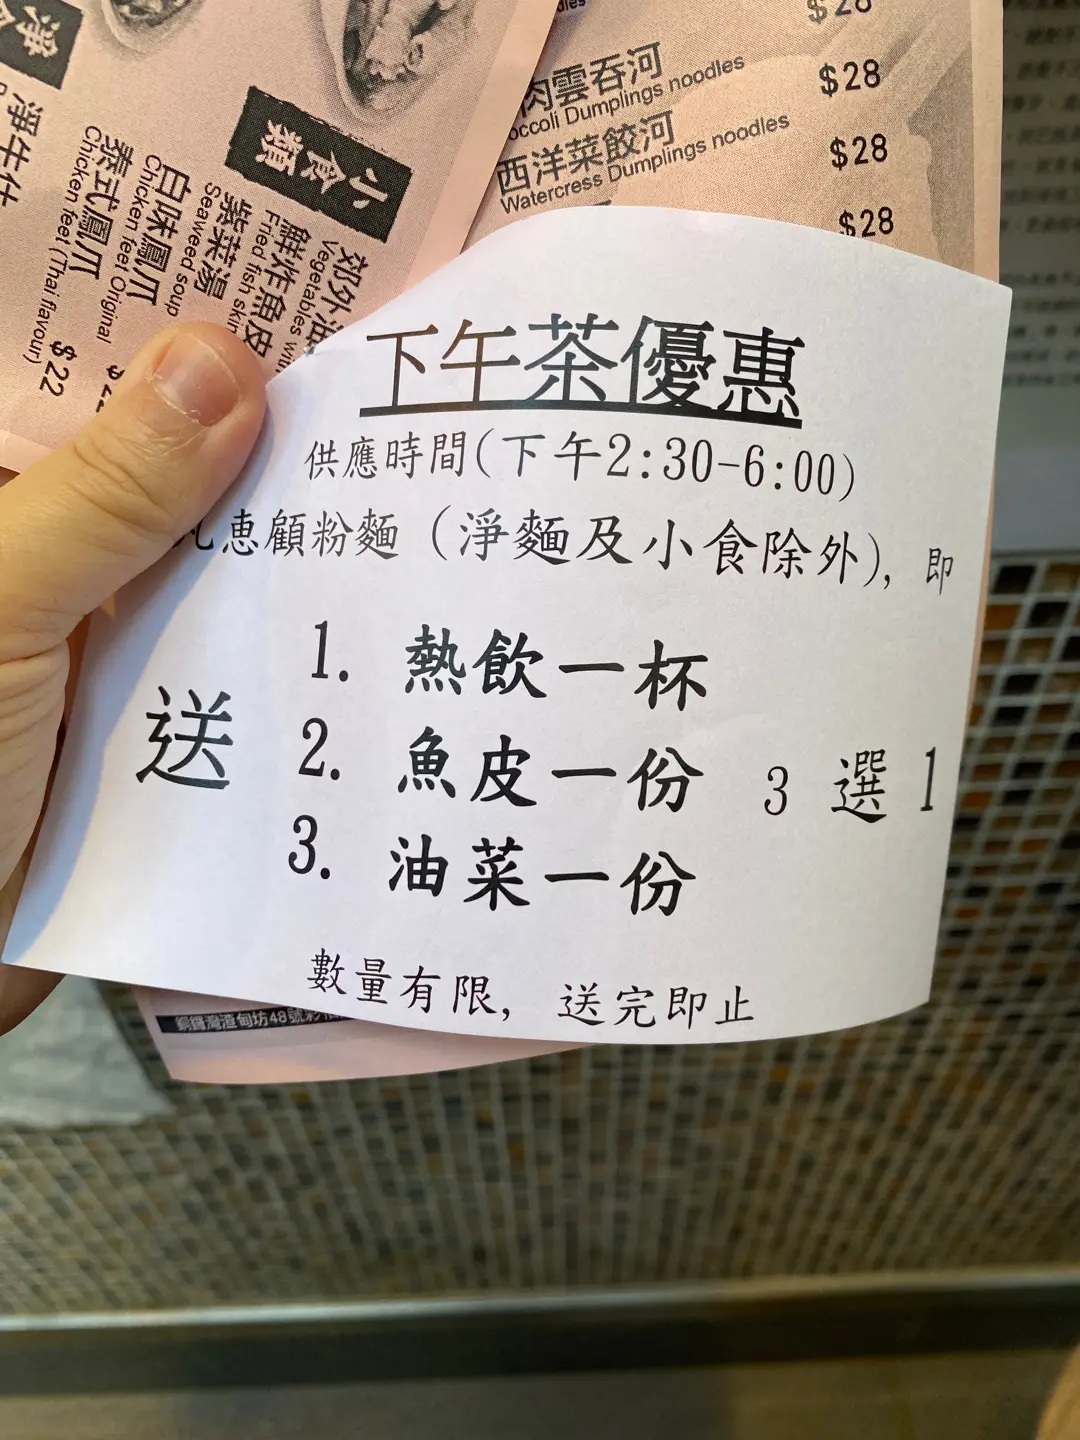 小食類
郊外油
Vegetables with
鮮炸魚皮
Fried fish skin
紫菜湯
Seaweed soup
白味鳳爪
Chicken feet Original
泰式鳳爪
Chicken feet (Thai flavour) $22
淨牛什
$28
肉雲吞河
occoli Dumplings noodles $28
西洋菜餃河
Watercress Dumplings noodles $28
$28
下午茶優惠
供應時間(下午2:30-6:00)
凡惠顧粉麵（淨麵及小食除外), 即
送
1. 熱飲一杯
2. 魚皮一份
3. 油菜一份
3 選 1
數量有限, 送完即止
銅鑼灣渣甸坊48號